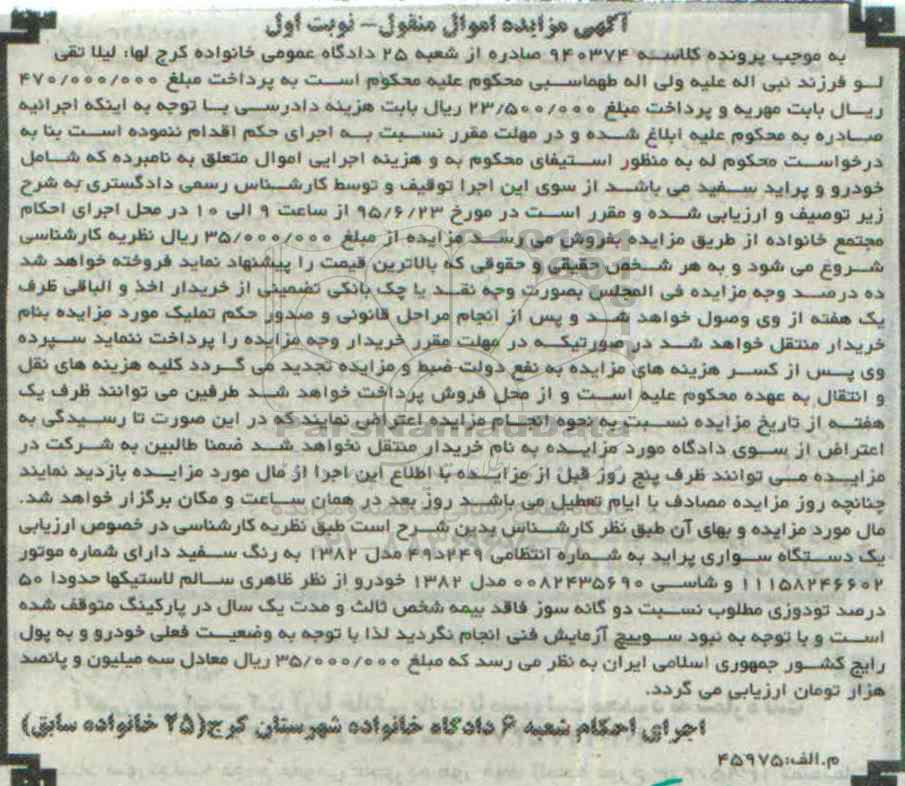 آگهی مزایده اموال منقول– نوبت اول
به موجب پرونده کلاسه ۹۴۰۳۷۴ صادره از شعبه ۲۵ دادگاه عمومی خانواده کرج لها: لیلا تقی
لو فرزند نبی اله علیه ولی اله طهماسبی محکوم علیه محکوم است به پرداخت مبلغ ۴۷۰/۰۰۰/۰۰۰
ریال بابت مهریه و پرداخت مبلغ ۲۳/۵۰۰/۰۰۰ ریال بابت هزینه دادرسی با توجه به اینکه اجرائیه
صادره به محکوم علیه ابلاغ شده و در مهلت مقرر نسبت به اجرای حکم اقدام ننموده است بنا به
درخواست محکوم له به منظور استیفای محکوم به و هزینه اجرایی اموال متعلق به نامبرده که شامل
خودرو و پراید سفید می باشد از سوی این اجرا توقیف و توسط کارشناس رسمی دادگستری به شرح
زیر توصیف و ارزیابی شده و مقرر است در مورخ ۹۵/۶/۲۳ از ساعت ۹ الی ۱۰ در محل اجرای احکام
مجتمع خانواده از طریق مزایده بفروش می رسد مزایده از مبلغ ۳۵/۰۰۰/۰۰۰ ریال نظریه کارشناسی
شروع می شود و به هر شخص حقیقی و حقوقی که بالاترین قیمت را پیشنهاد نماید فروخته خواهد شد
ده درصد وجه مزایده فی المجلس بصورت وجه نقد یا چک بانکی تضمینی از خریدار اخذ و الباقی ظرف
یک هفته از وی وصول خواهد شد و پس از انجام مراحل قانونی و صدور حکم تملیک مورد مزایده بنام
خریدار منتقل خواهد شد در صورتیکه در مهلت مقرر خریدار وجه مزایده را پرداخت ننماید سپرده
وی پس از کسر هزینه های مزایده به نفع دولت ضبط و مزایده تجدید می گردد کلیه هزینه های نقل
و انتقال به عهده محکوم علیه است و از محل فروش پرداخت خواهد شد طرفین می توانند ظرف یک
هفته از تاریخ مزایده نسبت به نحوه انجام مزایده اعتراض نمایند که در این صورت تا رسیدگی به
اعتراض از سوی دادگاه مورد مزایده به نام خریدار منتقل نخواهد شد ضمنا طالبین به شرکت در
مزایده می توانند ظرف پنج روز قبل از مزایده با اطلاع این اجرا از مال مورد مزایده بازدید نمایند
چنانچه روز مزایده مصادف با ایام تعطیل می باشد روز بعد در همان ساعت و مکان برگزار خواهد شد.
مال مورد مزایده و بهای آن طبق نظر کارشناس بدین شرح است طبق نظریه کارشناسی در خصوص ارزیابی
یک دستگاه سواری پراید به شماره انتظامی ۲۴۹د۴۹ مدل ۱۳۸۲ به رنگ سفید دارای شماره موتور
۱۱۱۵۸۲۴۶۶۰۲ و شاسی ۰۰۸۲۴۳۵۶۹۰ مدل ۱۳۸۲ خودرو از نظر ظاهری سالم لاستیکها حدودا ۵۰
درصد تودوزی مطلوب نسبت دو گانه سوز فاقد بیمه شخص ثالث و مدت یک سال در پارکینگ متوقف شده
است و با توجه به نبود سوییچ آزمایش فنی انجام نگردید لذا با توجه به وضعیت فعلی خودرو و به پول
رایج کشور جمهوری اسلامی ایران به نظر می رسد که مبلغ ۳۵/۰۰۰/۰۰۰ ریال معادل سه میلیون و پانصد
هزار تومان ارزیابی می گردد.
اجرای احکام شعبه ۶ دادگاه خانواده شهرستان کرج(۲۵ خانواده سابق)
م.الف:۴۵۹۷۵